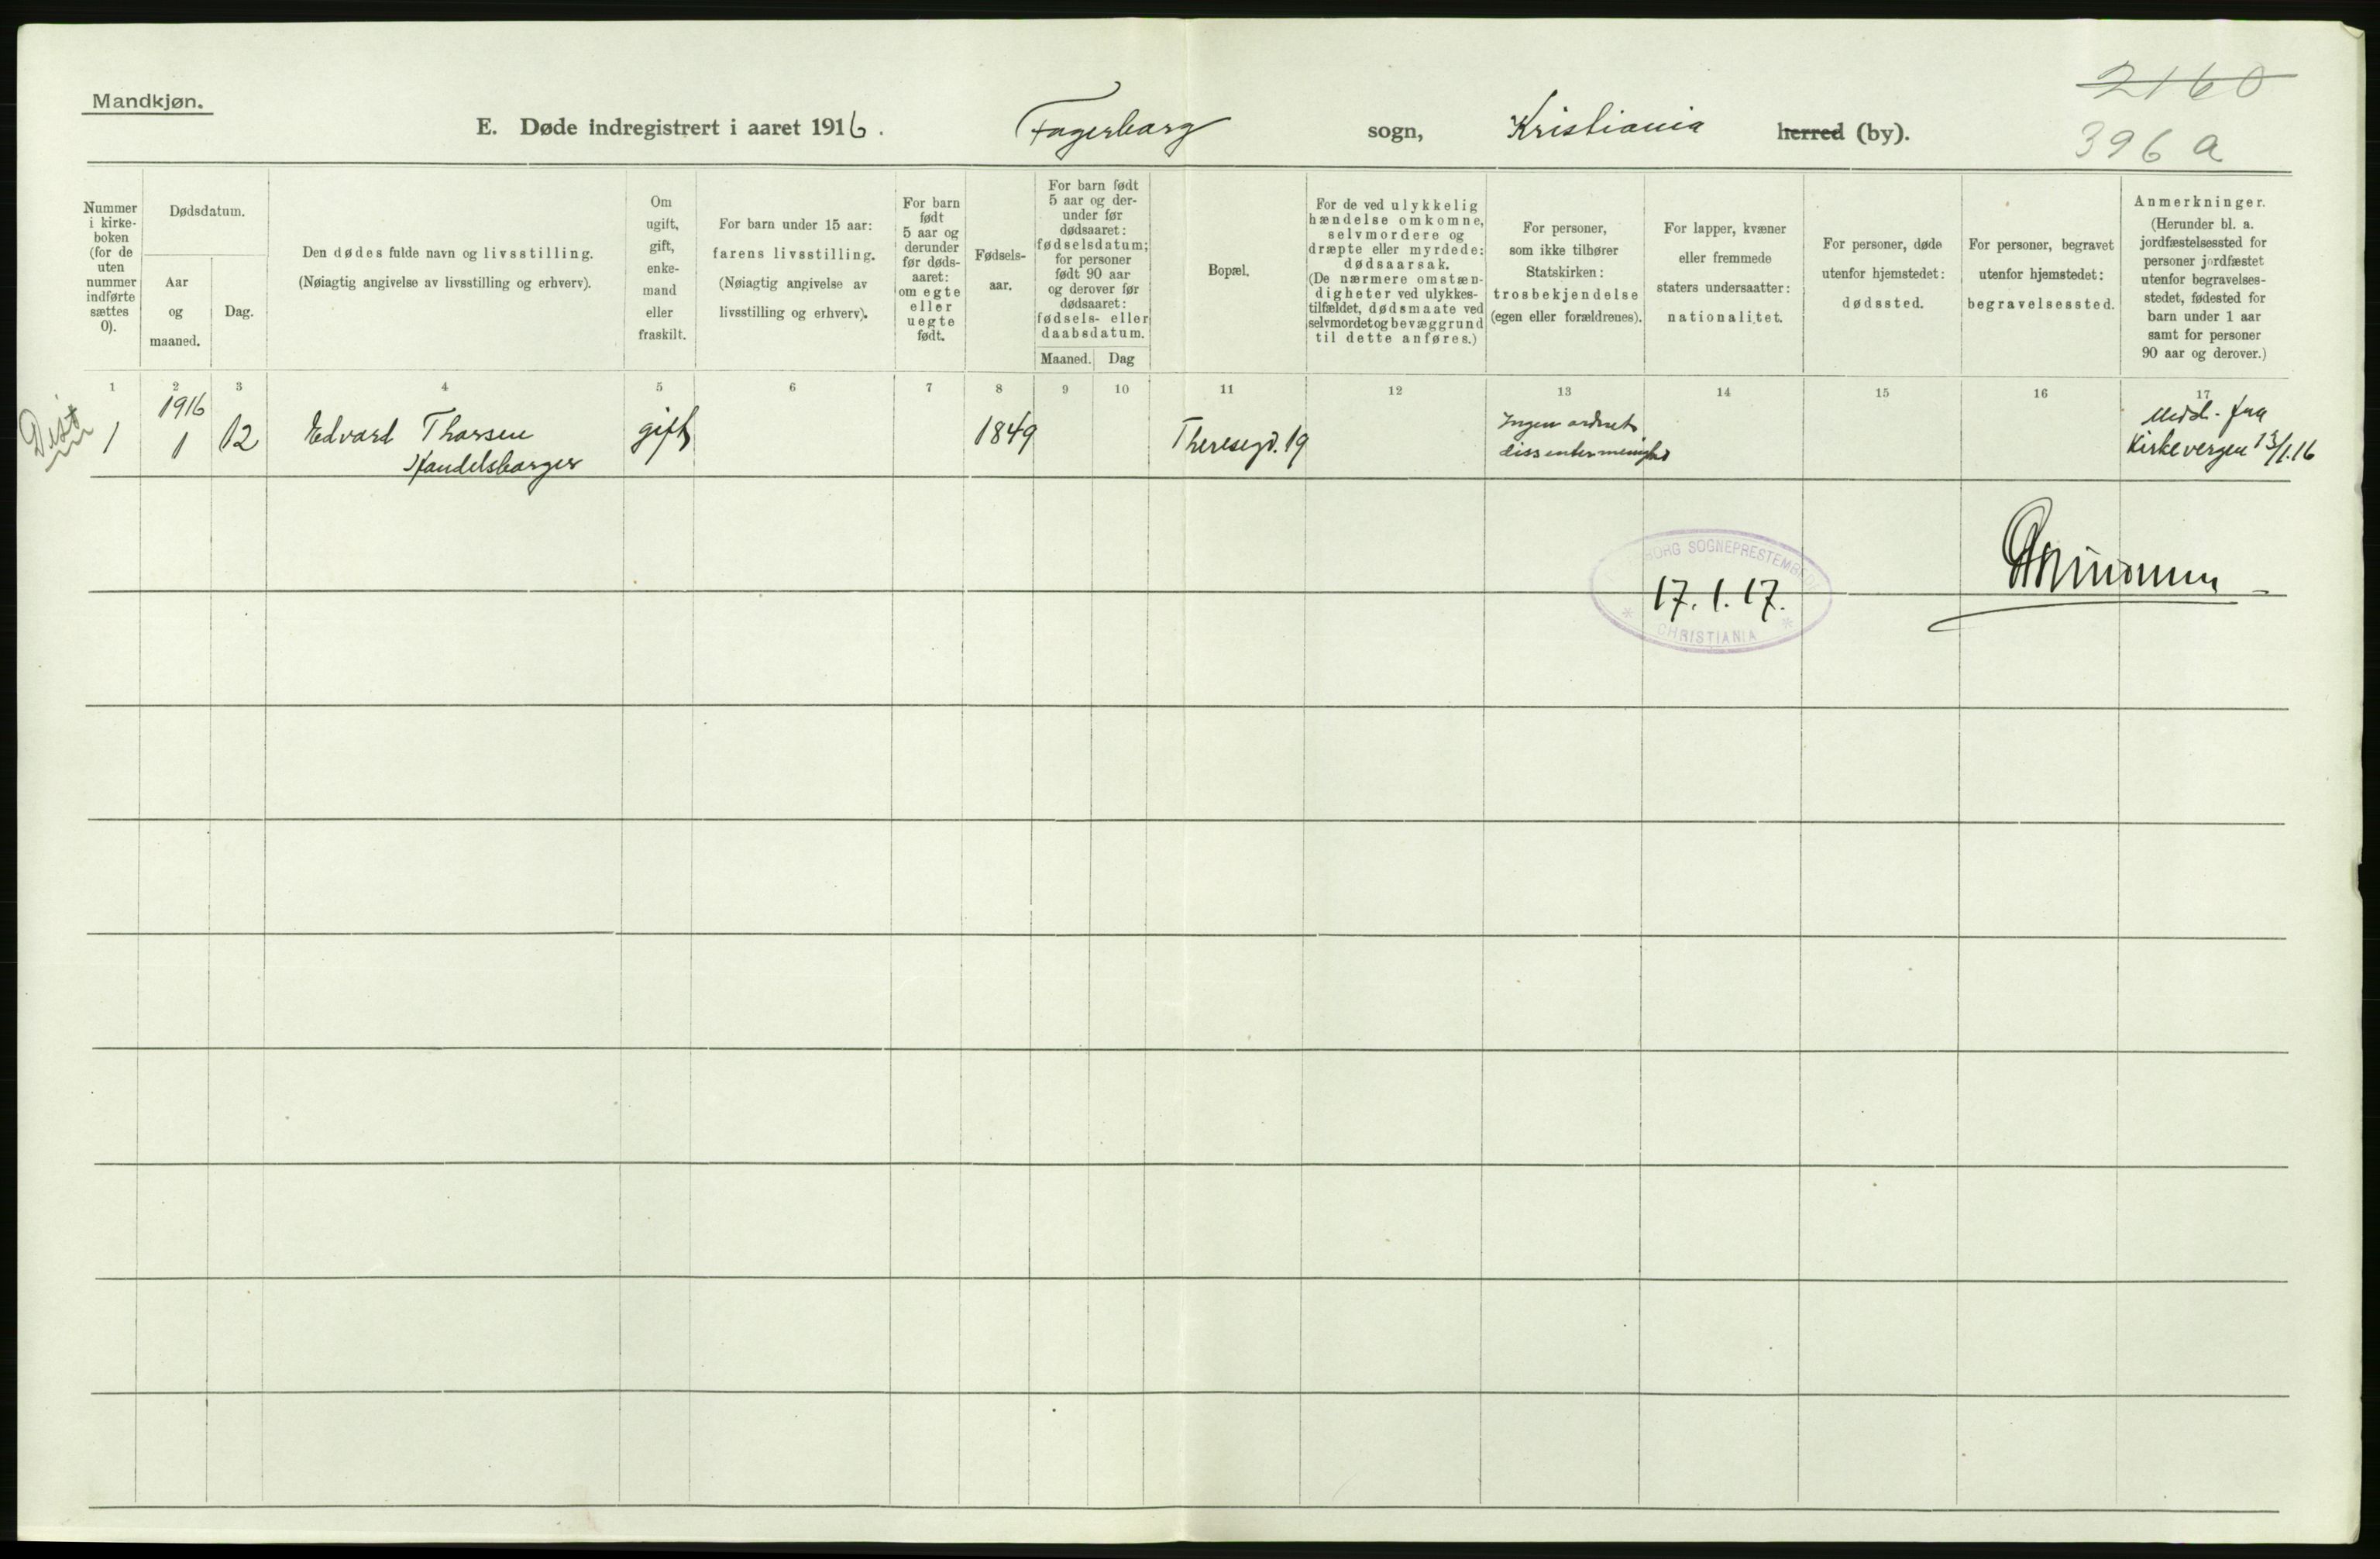 Mandkjøn.
E. Døde indregistrert i aaret 1916. Fagerborg sogn, Kristiania herred (by).
2160
396 a
Nummer
i kirke-
boken
(for de
uten
nummer
indførte
sættes
0).
Dødsdatum.
Aar
og
maaned.
Dag.
Den dødes fulde navn og livsstilling.
(Nøiagtig angivelse av livsstilling og erhverv).
Om
ugift,
gift,
enke-
mand
eller
fraskilt.
For barn under 15 aar:
farens livsstilling.
(Nøiagtig angivelse av
livsstilling og erhverv).
For barn
født
5 aar og
derunder
før døds-
aaret:
om egte
eller
uegte
født.
Fødsels-
aar.
For barn født
5 aar og der-
under før
dødsaaret:
fødselsdatum;
for personer
født 90 aar
og derover før
dødsaaret:
fødsels- eller
daabsdatum.
Maaned. Dag
Bopæl.
For de ved ulykkelig
hændelse omkomne,
selvmordere og
dræpte eller myrdede:
dødsaarsak.
(De nærmere omstæn-
digheter ved ulykkes-
tilfældet, dødsmaate ved
selvmordet og bevæggrund
til dette anføres.)
For personer,
som ikke tilhører
Statskirken:
trosbekjendelse
(egen eller forældrenes).
For lapper, kvæner
eller fremmede
staters undersaatter:
nationalitet.
For personer, døde
utenfor hjemstedet:
dødssted.
For personer, begravet
utenfor hjemstedet:
begravelsessted.
Anmerkninger.
(Herunder bl. a.
jordfæstelsessted for
personer jordfæstet
utenfor begravelses-
stedet, fødested for
barn under 1 aar
samt for personer
90 aar og derover.)
1 2 3 4 5 6 7 8 9 10 11 12 13 14 15 16 17
Dist
1916
1 1 12 Edvard Thorsen gift 1849 Theresegd. 19
Handelsborger
Ingen ordnet
dissentermenighed
Medd. fra
Kirkevergen 13/1.16
BORG SOGNEPRESTEMBEDE
17.1.17.
* CHRISTIANIA *